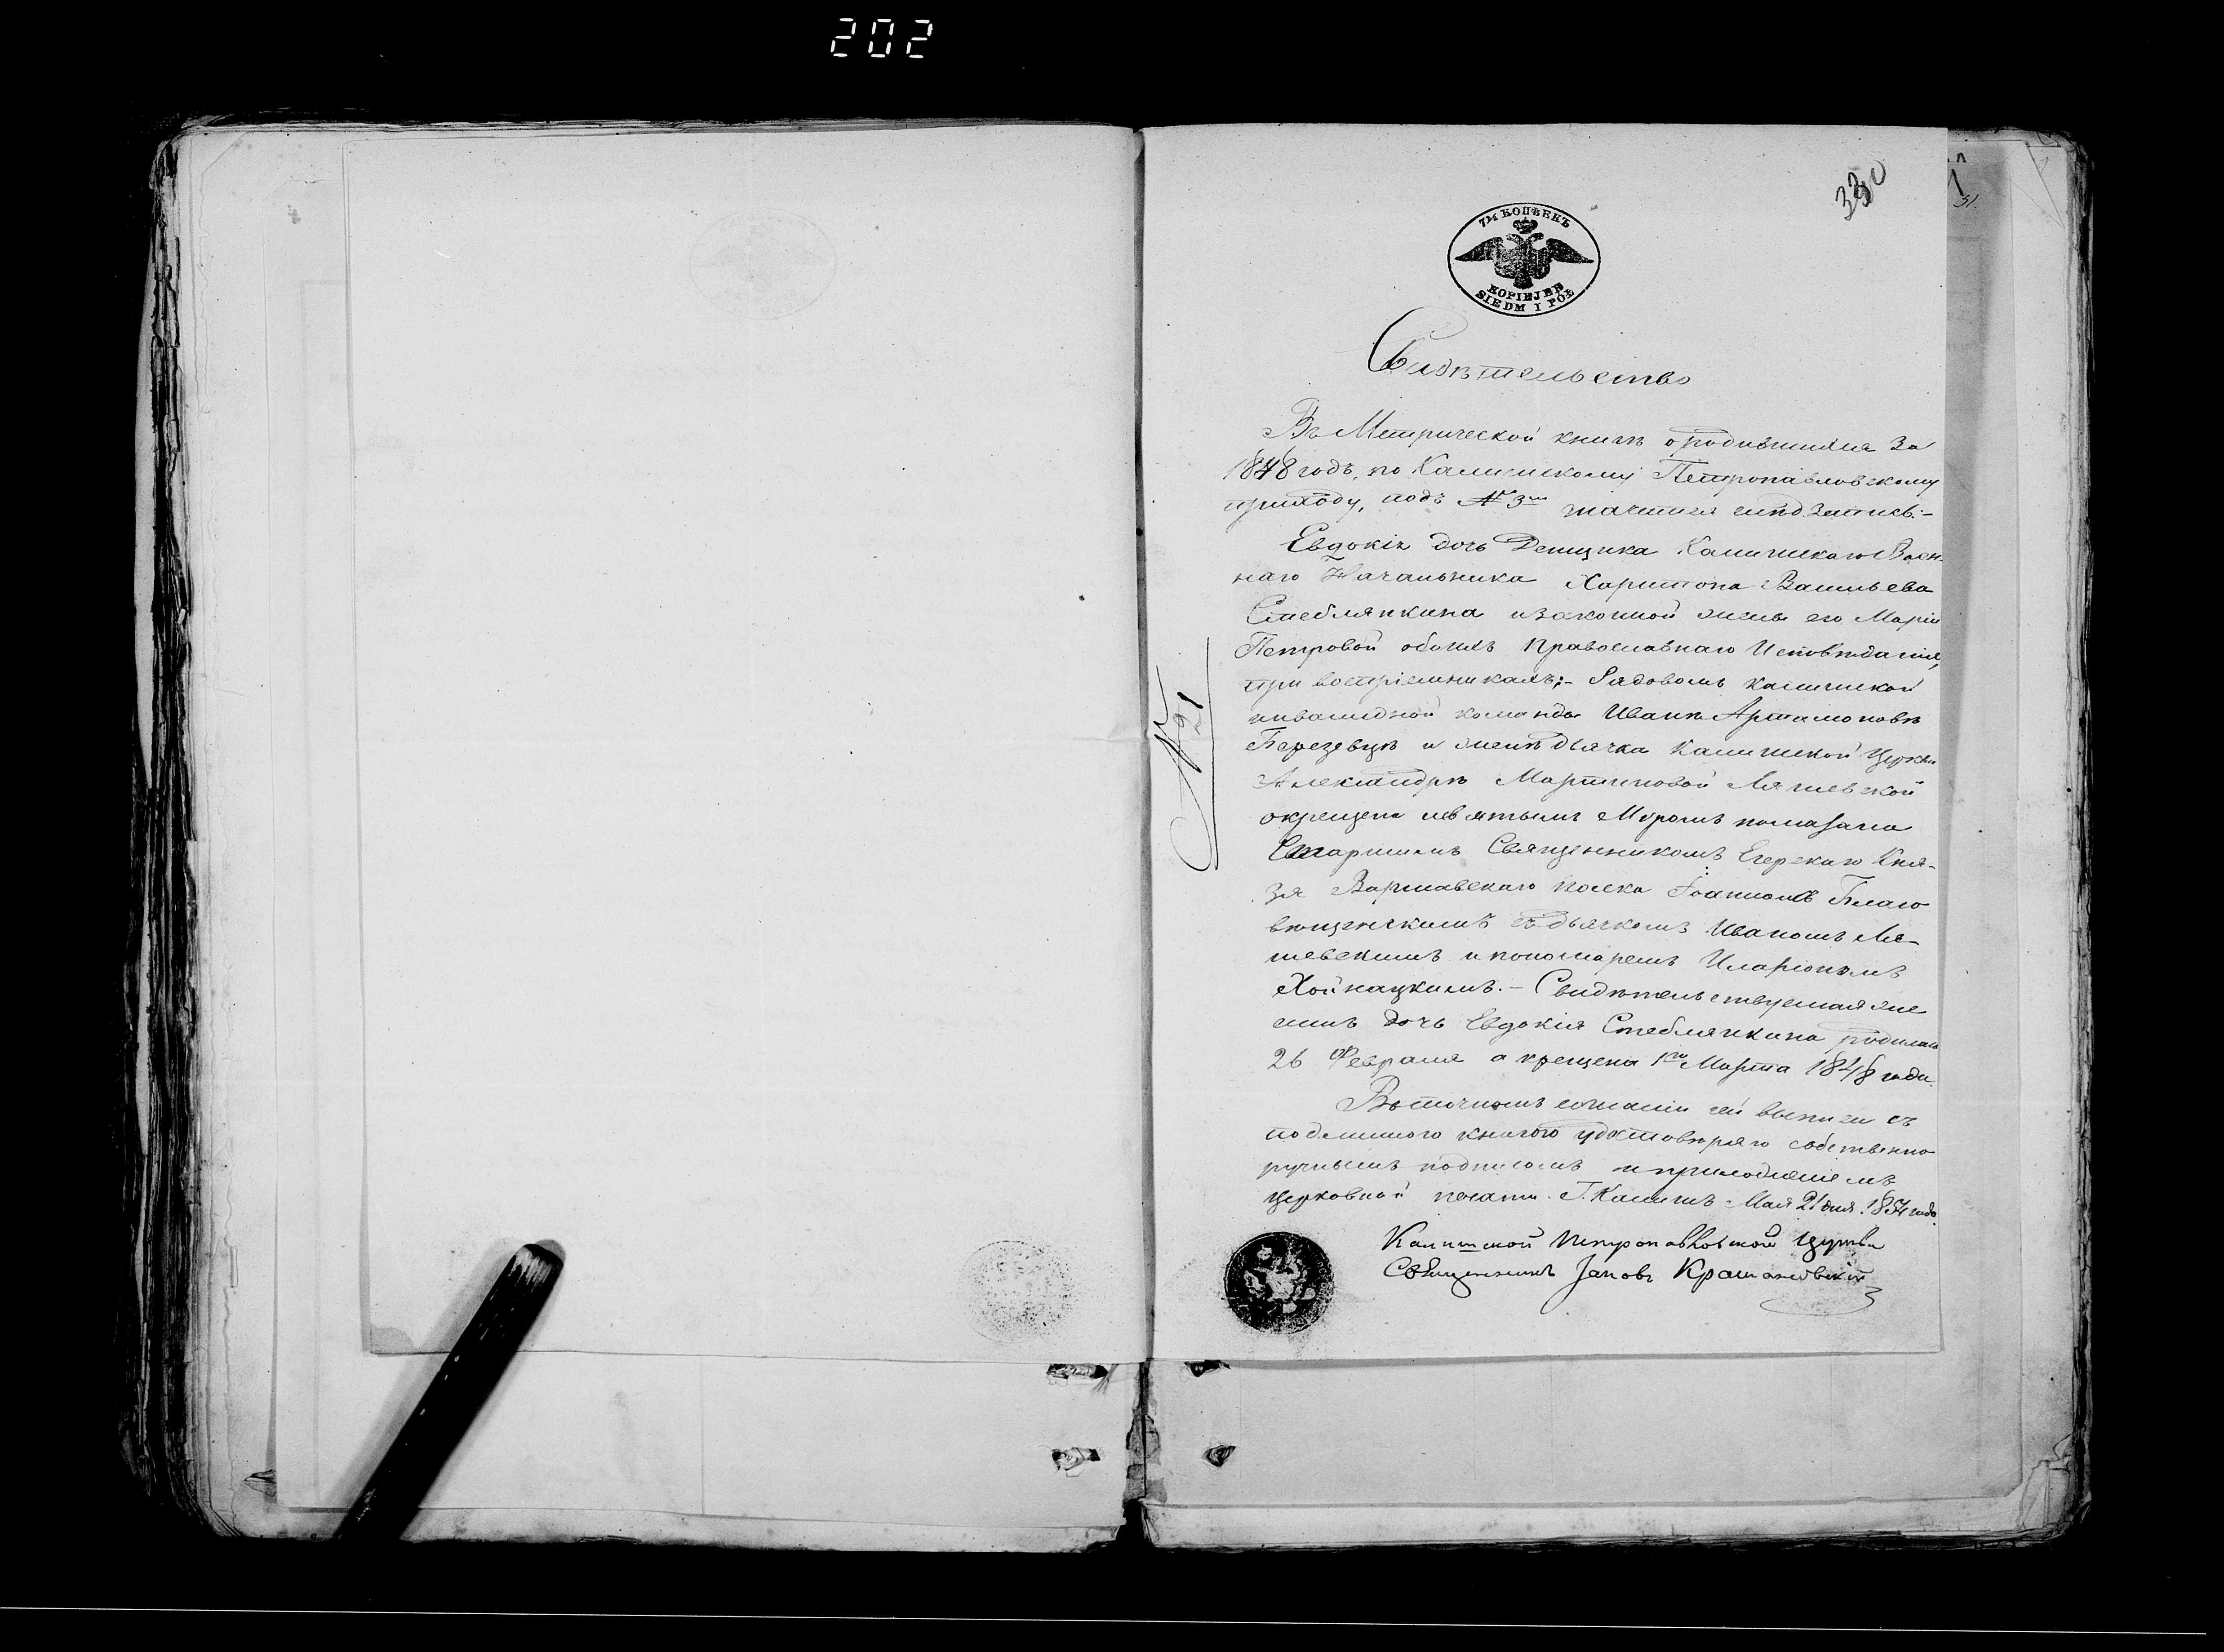 202
330
31.
7½ КОПѢЕКЪ
KOPIEJEK
SIEDM I PÓŁ
Свидѣтельство
Въ Метрической книгѣ о родившихся за
1848 годъ, по Калишскому Петропавловскому
приходу, подъ № 3мъ значится сія запись:-
Евдокія дочь Денщика Калишскаго Воен-
наго Начальника Харитона Васильева
Стеблянкина и законной жены его Маріи
Петровой обоихъ Православнаго Исповѣданія,
при воспріемникахъ:- Рядовомъ Калишской
инвалидной команды Иванѣ Артамоновѣ
Березевцѣ и женѣ дьячка Калишской Церкви
Александрѣ Мартиновой Ляшевской
окрещена и святымъ Мѵромъ помазана
Старшимъ Священникомъ Егерскаго Кня-
зя Варшавскаго полка Іоанномъ Благо
вѣщенскимъ съ дьячкомъ Иваномъ Ля-
шевскимъ и пономаремъ Иларіономъ
Хойнацкимъ.- Свидѣтельствуемая же
симъ дочь Евдокія Стеблянкина родилась
26 Февраля а крещена 1го Марта 1848 года.
Въ точномъ согласіи сей выписи съ
подлинною книгою удостовѣряю собственно
ручнымъ подписомъ и приложеніемъ
церковной печати. Г. Калишъ Мая 21 дня 1854 года.
Калишской Петропавловской Церкви
Священникъ Іаковъ Крашановскій
№ 21